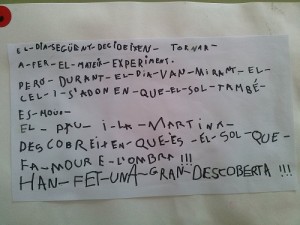 EL-DIA-SEGÜENT-DECIDEIXEN- TORNAR-
A-FER-EL-MATEIX EXPERIMENT.
PERO-DURANT-EL-DIA-VAN-MIRANT-EL-
CEL-I-S'ADONEN-QUE-EL-SOL-TAMBÉ-
ES-MOU-
EL- PAU i-LA-MARTINA-
DESCOBREIXEN-QUE-ES-EL-SOL-QUE-
FA-MOURE-L'OMBRA!!!
HAN-FET-UNA-GRAN-DESCOBERTA!!!